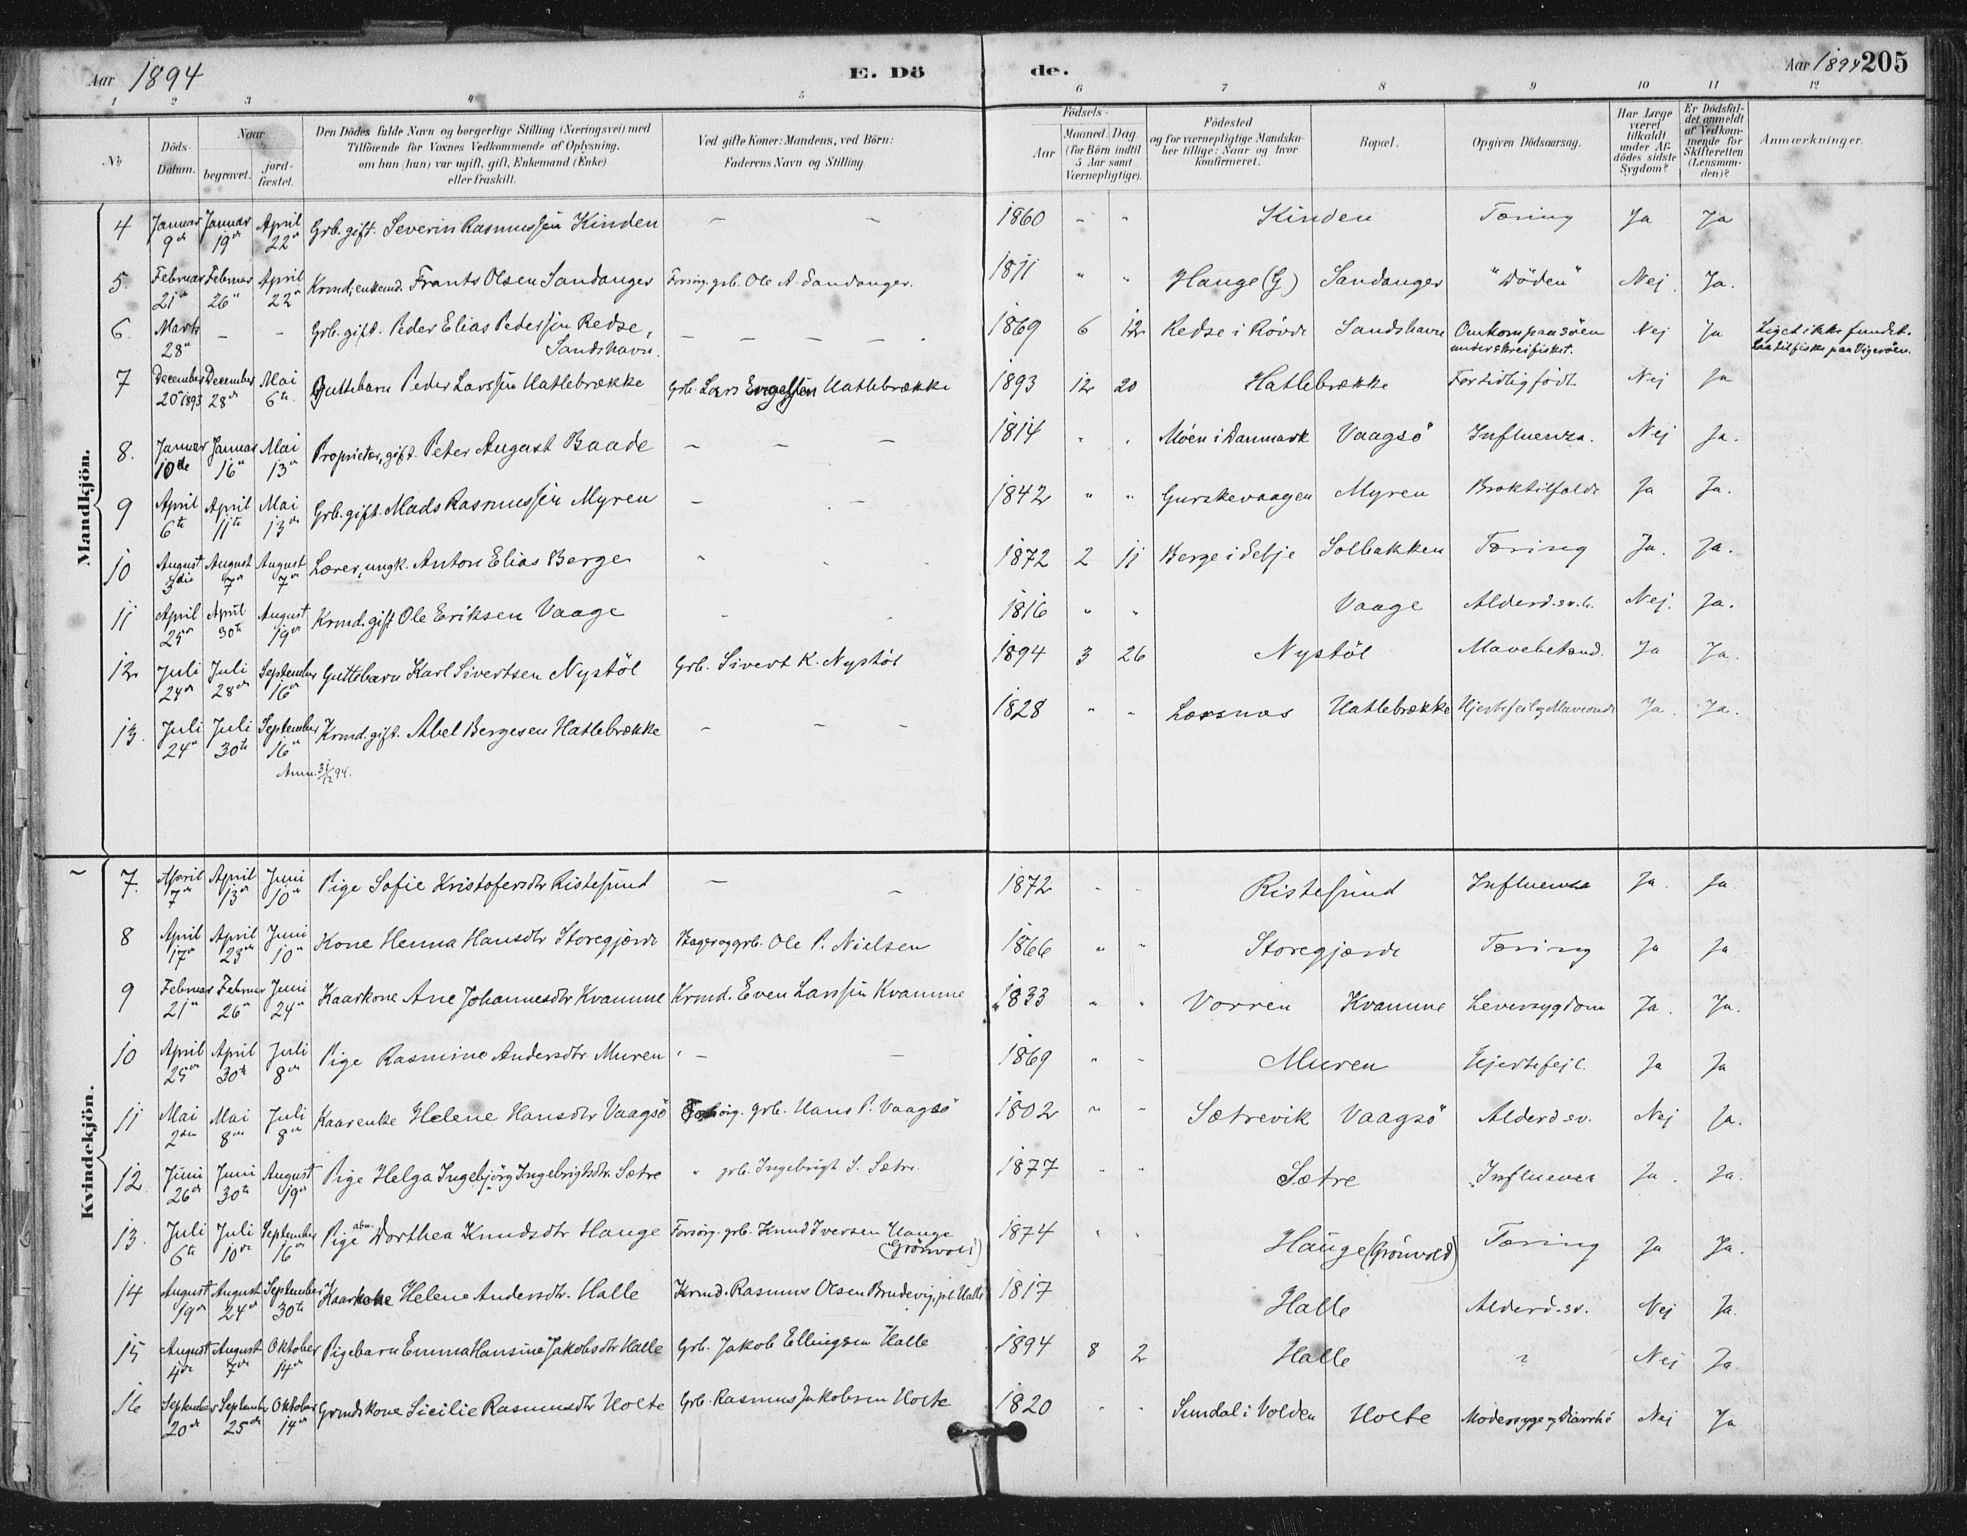 Aar 1894
E. Dö
de.
Aar 1894 205
1 2 3 4 5 6 7 8 9 10 11 12
No
Döds-Datum.
Naar
begravet.
jord-fæstet.
Den Dödes fulde Navn og borgerlige Stilling (Næringsvei) med
Tilföiende for Voxnes Vedkommende af Oplysning,
om han (hun) var ugift, gift, Enkemand (Enke)
eller fraskilt.
Ved gifte Koner: Mandens, ved Börn:
Faderens Navn og Stilling.
Födsels-
Aar
Maaned. Dag
(for Börn indtil
5 Aar samt
Værnepligtige).
Födested
og for værnepligtige Mandskaber tillige: Naar og hvor
konfirmeret.
Bopæl.
Opgiven Dödsaarsag.
Har Læge
været
tilkaldt
under Afdödes sidste
Sygdom?
Er Dödsfaldet anmeldt
af Vedkommende for
Skifteretten
(Lensmanden)?
Anmærkninger.
Mandkjön.
4 Januar 9de Januar 19de April 22de Grb. gift. Severin Rasmussen Kinden – – 1860 " " Kinden Tæring Ja Ja
5. Februar 21de Februar 26de April 22de Krmd, enkemd. Frants Olsen Sandanger Forsörg. grb. Ole A. Sandanger. 1811 " " Hauge (G) Sandanger "Döden" Nej Ja.
6. Marts 28de – – Grb. gift. Peder Elias Pedersen Redse, Sandshavn. – – – – 1869 6 12 Redse i Rövde Sandshavn Omkom paa söen under skreifisket. Nej Ja Liget ikke fundet. Laa til fiske paa Vigeröen.
7 December 20de 1893 December 28de Mai 6te Guttebarn Peder Larssen Hatlebrække Grb. Lars Engelssen Hatlebrække 1893 12 20 Hatlebrække For tidlig födt. Nej Ja
8. Januar 10de Januar 16de Mai 13de Proprietær, gift. Peter August Baade – – – 1814 " " Möen i Danmark Vaagsö Influenza. Nej Ja.
9 April 6te April 11te Mai 13de Grb. gift. Mads Rasmussen Myren – 1842 " " Gurskevaagen Myren Broktilfælde Ja Ja.
10 August 3die August 7de August 7de Lærer, ungk. Anton Elias Berge 1872 2 11 Berge i Selje Solbakken Tæring Ja. Ja.
11 April 25de April 30te August 19de Krmd. gift Ole Eriksen Vaage 1816 " " Vaage Alderd.sv.h. Nej. Ja.
12. Juli 24de Juli 28de September 16de Guttebarn Karl Sivertsen Nystöl Grb. Sivert K. Nystöl 1894 3 26 Nystöl Mavebetænd. Ja Ja.
13. Juli 24de Juli 30te September 16de Krmd. gift. Abel Bergesen Hatlebrække – – – 1828 " " Læsnes Hatlebrække Hjertefeil og Maveonde Ja. Ja.
Anm. 31/12 94.
Kvindekjön.
7. April 7de April 13de Juni 10de Pige Sofie Kristofersdtr Ristesund – – 1872 " " Ristesund Influenza Ja. Ja.
8 April 17de April 23de Juni 10de Kone Henna Hansdtr Storegjerde Bager og grb. Ole P. Nielsen 1866 " " Storegjærde Tæring Ja Ja
9 Februar 21de Februar 26de Juni 24de Kaarkone Ane Johannesdtr Kvamme Krmd. Even Larssen Kvamme 1833 " " Vorren Kvamme Leversygdom Ja. Ja.
10 April 25de April 30te Juli 8de Pige Rasmine Andersdtr Muren – – 1869 " " Muren Hjertefejl. Ja Ja
11 Mai 2den Mai 8de Juli 8de Kaarenke Helene Hansdtr Vaagsö Forsörg. grb. Hans P. Vaagsö 1802 " " Sætrevik Vaagsö Alderd sv. Nej Ja.
12 Juni 26de Juni 30te August 19de Pige Helga Ingebjörg Ingebrigtsdtr. Sætre " grb. Ingebrigt S. Sætre. 1877 " " Sætre Influenza Ja. Ja.
13. Juli 6te Juli 10de September 16de Pige Dorthea Knudsdtr Hauge Forsörg. grb. Knud Iversen Hauge (Grönvold) 1874 " " Hauge (Grönvold) Tæring Ja Ja.
14 August 19de August 24de September 30te Kaarkone Helene Andersdtr. Halle Krmd. Rasmus Olsen Brudevig, pt Halle 1817 Halle Alderd. sv. Nej Ja.
15 August 4de August 7de Oktober 14de Pigebarn Emma Hansine Jakobsdtr Halle Grb. Jakob Ellingsen Halle 1894 8 2 Halle ? Nej Ja.
16 September 20de September 25de Oktober 14de Grmdskone Sicilie Rasmusdtr Holte Grb. Rasmus Jakobsen Holte 1820 " " Sundal i Volden Holte Modersyge og Diarrhé Nej Ja